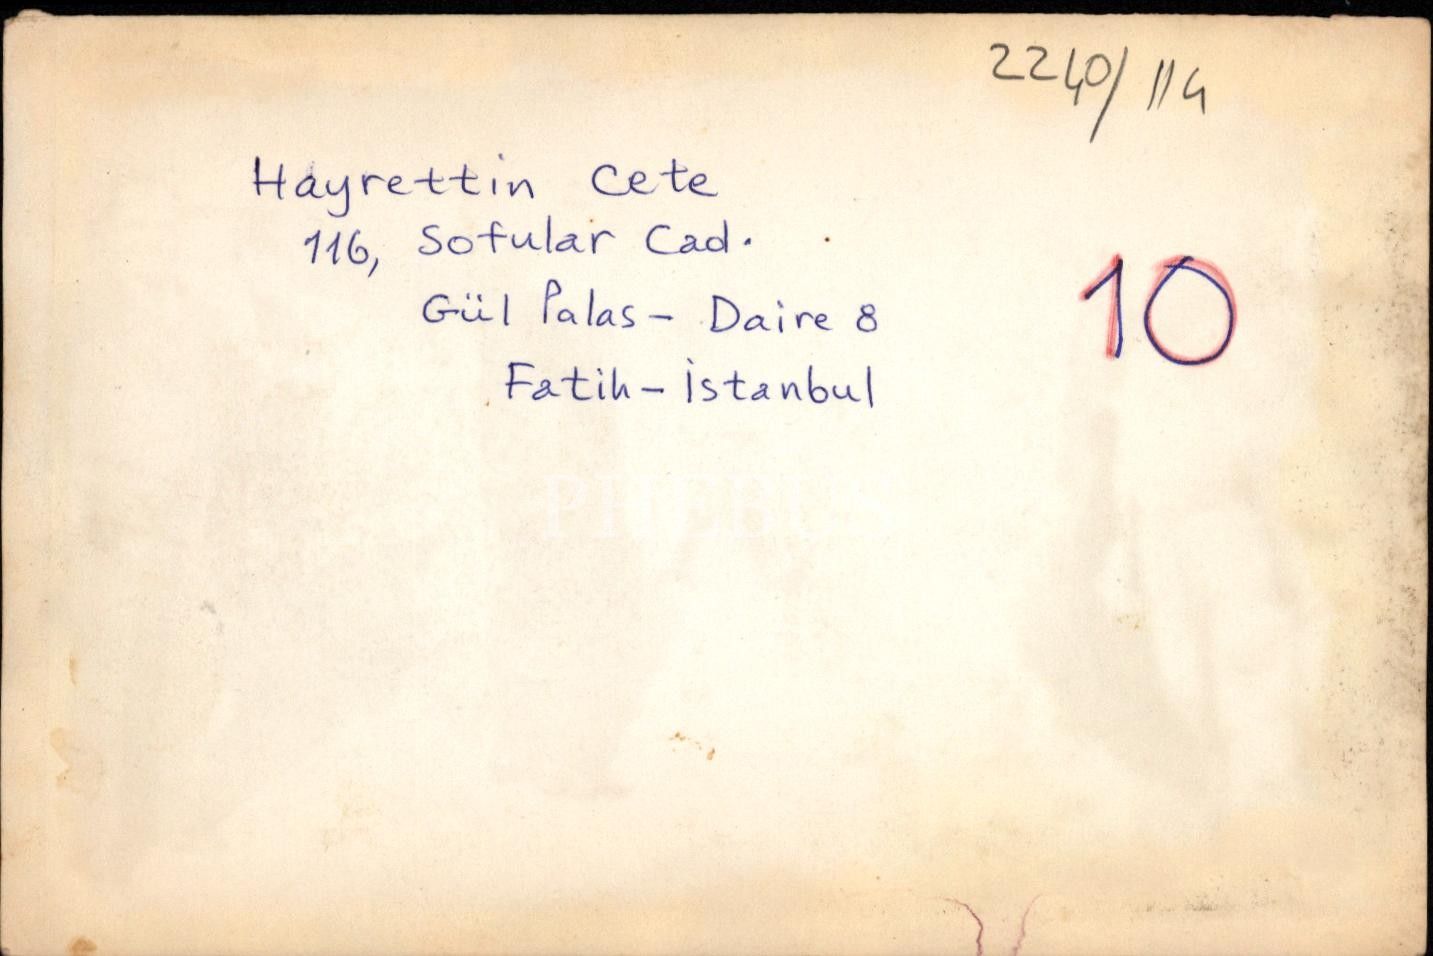 2240/114
Hayrettin Cete
116, Sofular Cad.
Gül Palas - Daire 8
10
Fatih - İstanbul
PHEBUS